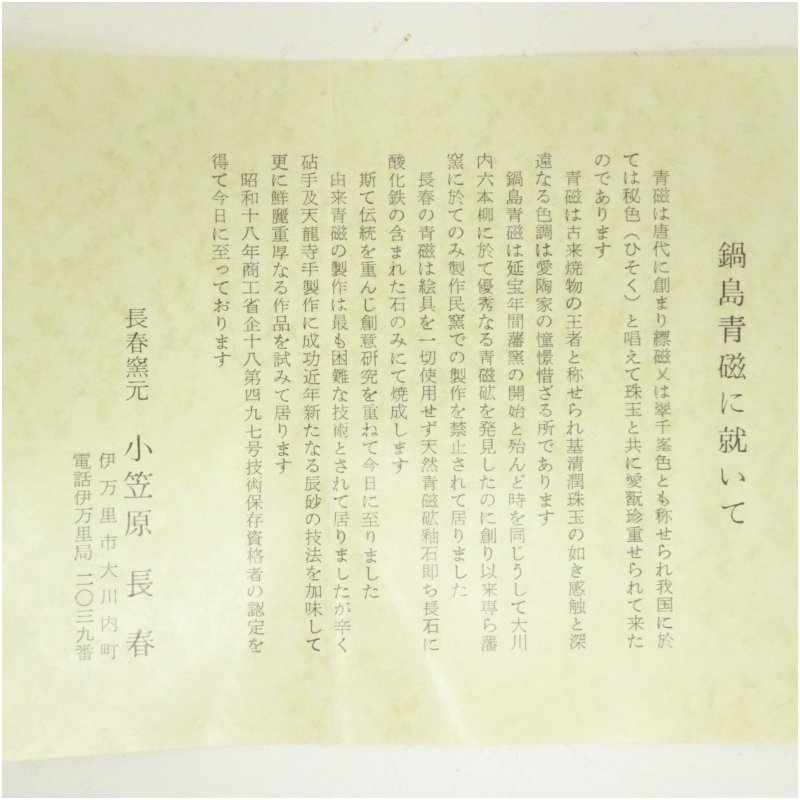 鍋島青磁に就いて
青磁は唐代に創まり縹磁又は翠千峯色とも称せられ我国に於
ては秘色（ひそく）と唱えて珠玉と共に愛翫珍重せられて来た
のであります
青磁は古来焼物の王者と称せられ基清潤珠玉の如き感触と深
遠なる色調は愛陶家の憧憬惜ざる所であります
鍋島青磁は延宝年間藩窯の開始と殆んど時を同じうして大川
内六本柳に於て優秀なる青磁砿を発見したのに創り以来専ら藩
窯に於てのみ製作民窯での製作を禁止されて居りました
長春の青磁は絵具を一切使用せず天然青磁砿釉石即ち長石に
酸化鉄の含まれた石のみにて焼成します
斯て伝統を重んじ創意研究を重ねて今日に至りました
由来青磁の製作は最も困難な技術とされて居りましたが辛く
砧手及天龍寺手製作に成功近年新たなる辰砂の技法を加味して
更に鮮麗重厚なる作品を試みて居ります
昭和十八年商工省企十八第四九七号技術保存資格者の認定を
得て今日に至っております
長春窯元　小笠原長春
伊万里市大川内町
電話伊万里局二〇三九番